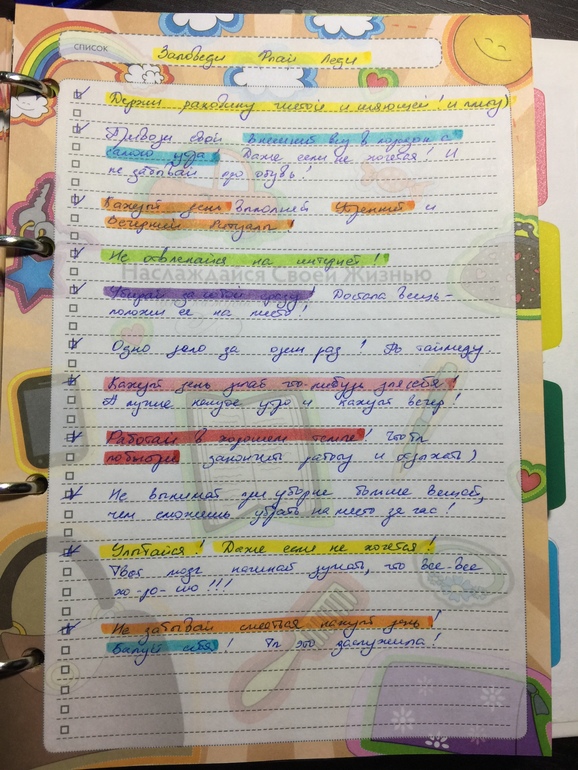 СПИСОК Заповеди Флай Леди
Держи раковину чистой и сияющей! и плиту)
Приводи свой внешний вид в порядок с
самого утра. Даже если не хочется! И
не забывай про обувь!
Каждый день выполняй Утренний и
Вечерний Ритуалы!
Не отвлекайся на интернет!
Наслаждайся Своей Жизнью
Убирай за собой сразу! Достала вещь –
положи её на место!
Одно дело за один раз! По таймеру.
Каждый день делай что-нибудь для себя!
А лучше каждое утро и каждый вечер!
Работай в хорошем темпе! Чтобы
побыстрей закончить работу и отдыхать)
Не вынимай при уборке больше вещей,
чем сможешь убрать на место за час!
Улыбайся! Даже если не хочется!
Твой мозг начинает думать, что все-все
хо-ро-шо!!!
Не забывай смеяться каждый день!
Балуй себя! Ты это заслужила!